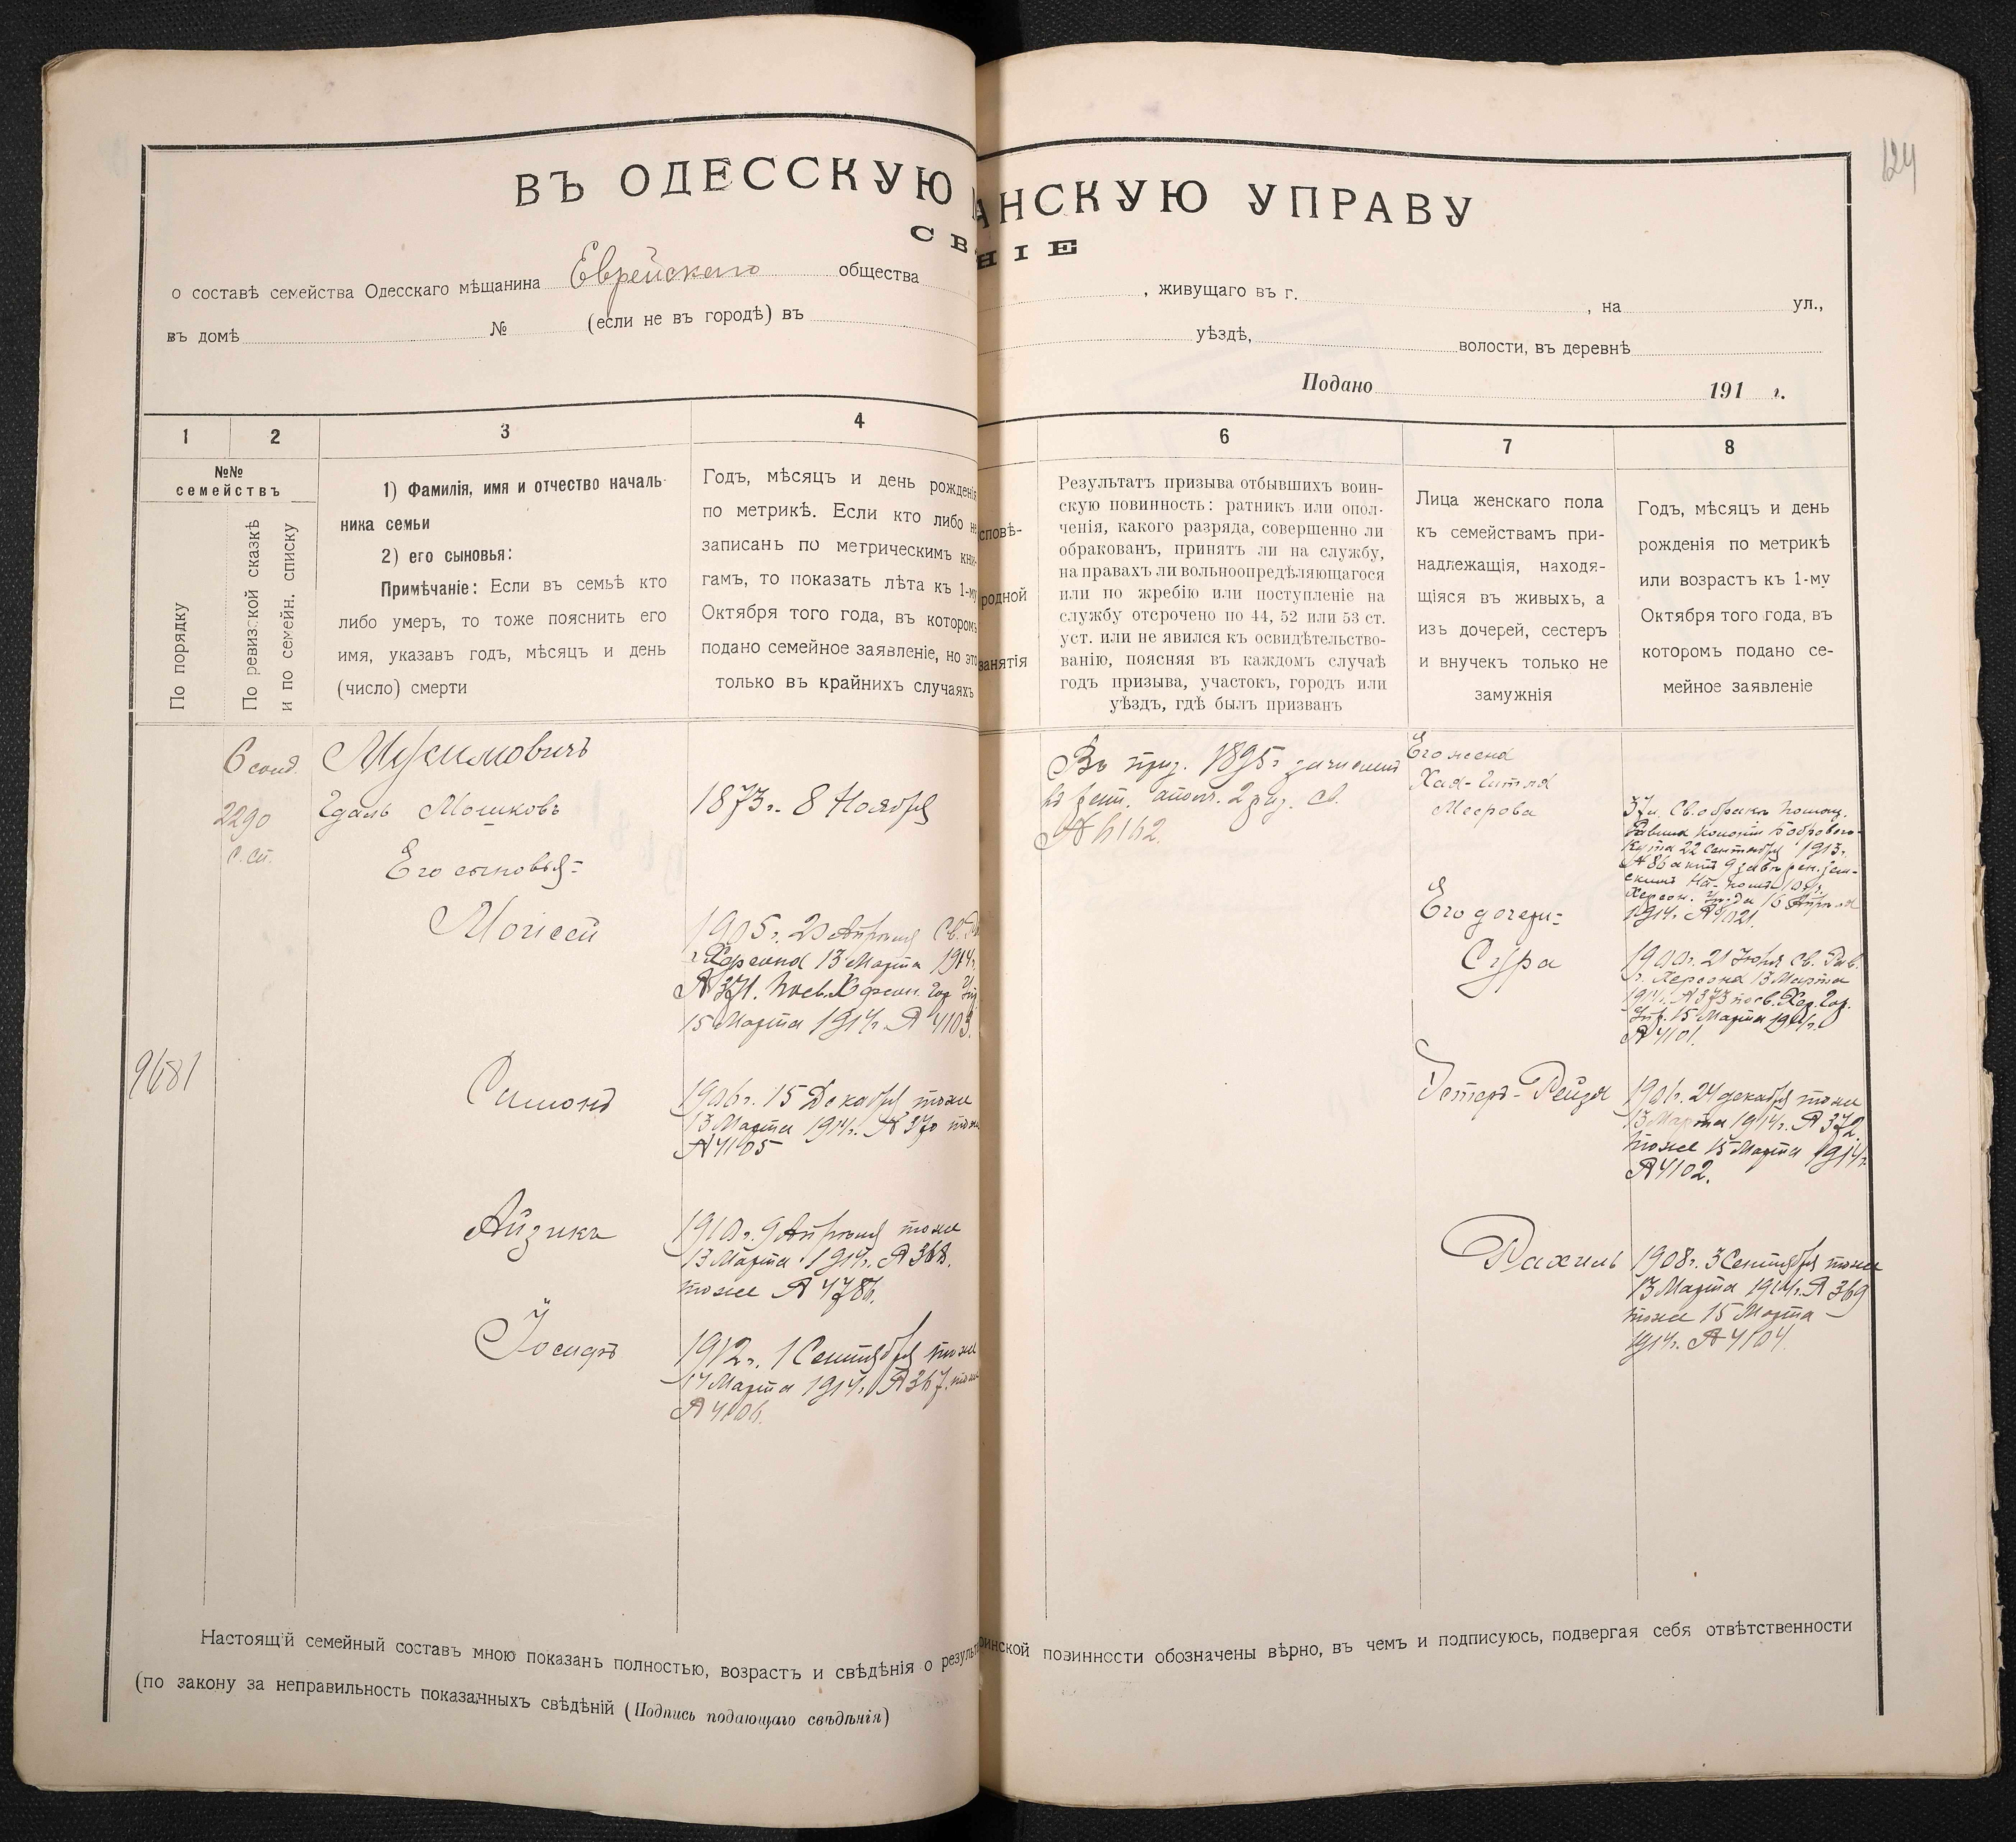 124
ВЪ ОДЕССКУЮ АНСКУЮ УПРАВУ
СВ НІЕ
о составѣ семейства Одесскаго мѣщанина Еврейскаго общества , живущаго въ г. , на ул.,
въ домѣ № (если не въ городѣ) въ уѣздѣ, волости, въ деревнѣ
Подано 191 г.
1 2 3 4
№№
семействъ
По порядку
По ревизской сказкѣ
и по семейн. списку
1) Фамилія, имя и отчество началь-
ника семьи
2) его сыновья:
Примѣчаніе: Если въ семьѣ кто
либо умеръ, то тоже пояснить его
имя, указавъ годъ, мѣсяцъ и день
(число) смерти
Годъ, мѣсяцъ и день рожденія
по метрикѣ. Если кто либо не
записанъ по метрическимъ кни-
гамъ, то показать лѣта къ 1-му
Октября того года, въ которомъ
подано семейное заявленіе, но это
только въ крайнихъ случаяхъ
6 7 8
сповѣ-
родной
занятія
Результатъ призыва отбывшихъ воин-
скую повинность: ратникъ или опол-
ченія, какого разряда, совершенно ли
обракованъ, принятъ ли на службу,
на правахъ ли вольноопредѣляющагося
или по жребію или поступленіе на
службу отсрочено по 44, 52 или 53 ст.
уст. или не явился къ освидѣтельство-
ванію, поясняя въ каждомъ случаѣ
годъ призыва, участокъ, городъ или
уѣздъ, гдѣ былъ призванъ
Лица женскаго пола
къ семействамъ при-
надлежащія, находя-
щіяся въ живыхъ, а
изъ дочерей, сестеръ
и внучекъ только не
замужнія
Годъ, мѣсяцъ и день
рожденія по метрикѣ
или возрастъ къ 1-му
Октября того года, въ
которомъ подано се-
мейное заявленіе
9681
6 2290
с. сп.
Гдаль Мошковъ
1873 г. 8 Ноября
Его сыновья:
Моисей
1905 г. 20 Апрѣля Св.
г. Херсона 13 Марта 1914 г.
№ 371.
15 Марта 1914 г. № 4103.
Симонъ
1906 г. 15 Декабря тоже
13 Марта 1914 г. № 370 тоже
№ 4105
Айзикъ
1910 г. 9 Апрѣля тоже
13 Марта 1914 г. № 368.
тоже № 4786.
Іосифъ
1912 г. 1 Сентября тоже
14 Марта 1914 г. № 367. тоже
№ 4106.
Въ приз. 1895 г. зачисленъ
въ рат. опол. 2 раз. св.
№ 6162.
Его жена
Хая-Гитля
Меерова
22 Сентября 1913 г.
16 Апрѣля
1914 г. № 4021.
Его дочери:
Сура
1900 г. 21 Св. Рав.
г. Херсона 13 Марта
1914 г. № 373 Хер. Гор.
Упр. 15 Марта 1914 г.
№ 4101.
Эстеръ-Рейзя
24 декабря тоже
13 Марта 1914 г. № 372.
тоже 15 Марта 1914 г.
№ 4102.
Рахиль
1908 г. 3 Сентября тоже
13 Марта 1914 г. № 369
тоже 15 Марта
1914 г. № 4104.
Настоящій семейный составъ мною показанъ полностью, возрастъ и свѣдѣнія о результ инской повинности обозначены вѣрно, въ чемъ и подписуюсь, подвергая себя отвѣтственности
(по закону за неправильность показанныхъ свѣдѣній (Подпись подающаго свѣдѣнія)